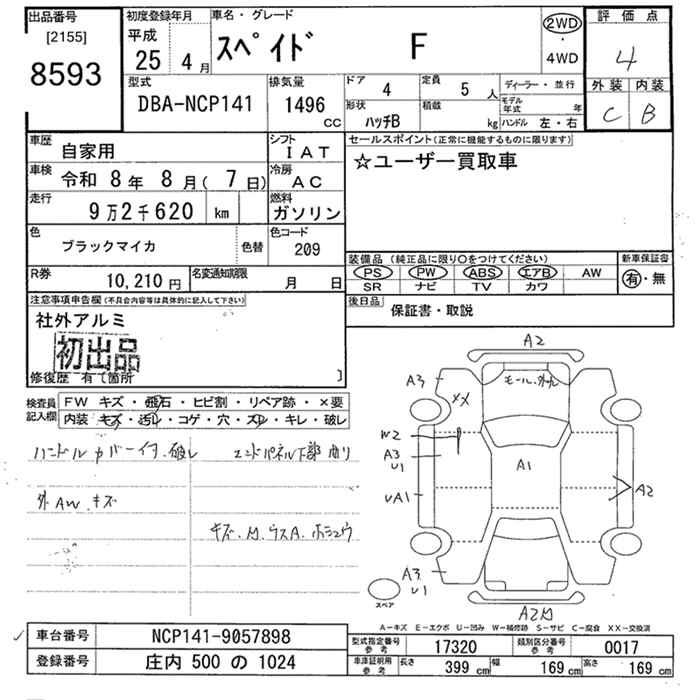 出品番号
[2155]
8593
初度登録年月
平成
25 4 月
車名・グレード
スペイド F
2WD
・
4WD
評価点
4
外装 内装
C B
型式
DBA-NCP141
排気量
1496
cc
ドア 4
定員 5 人
ディーラー・並行
形状 ハッチB
積載 kg
モデル年式 年
ハンドル 左・右
車歴 自家用
シフト IAT
車検 令和 8 年 8 月( 7 日)
冷房 AC
走行 9万2千620 km
燃料 ガソリン
色 ブラックマイカ 色替
色コード 209
R券 10,210 円
名変通知期限 月 日
セールスポイント(正常に機能するものに限ります)
☆ユーザー買取車
装備品 (純正品に限り○をつけてください)
PS PW ABS エアB AW
SR ナビ TV カワ
新車保証書
有・無
後日品 保証書・取説
注意事項申告欄(不具合内容等は具体的に記入して下さい)
社外アルミ
初出品
修復歴 有〔箇所 〕
検査員記入欄
FW キズ・飛石・ヒビ割・リペア跡・×要
内装・キズ・汚レ・コゲ・穴・スレ・キレ・破レ
ハンドルカバーイタ、破レ
エンドパネル下部曲り
外AW キズ
A2
A3
XX
W2
A3
U1
UA1
A1
A2
A3
U1
スペア
A－キズ E－エクボ U－凹み W－補修跡 S－サビ C－腐食 XX－交換済
車台番号 NCP141-9057898
登録番号 庄内 500 の 1024
型式指定番号参考 17320
類別区分番号参考 0017
車庫証明用参考
長さ 399 cm
幅 169 cm
高さ 169 cm